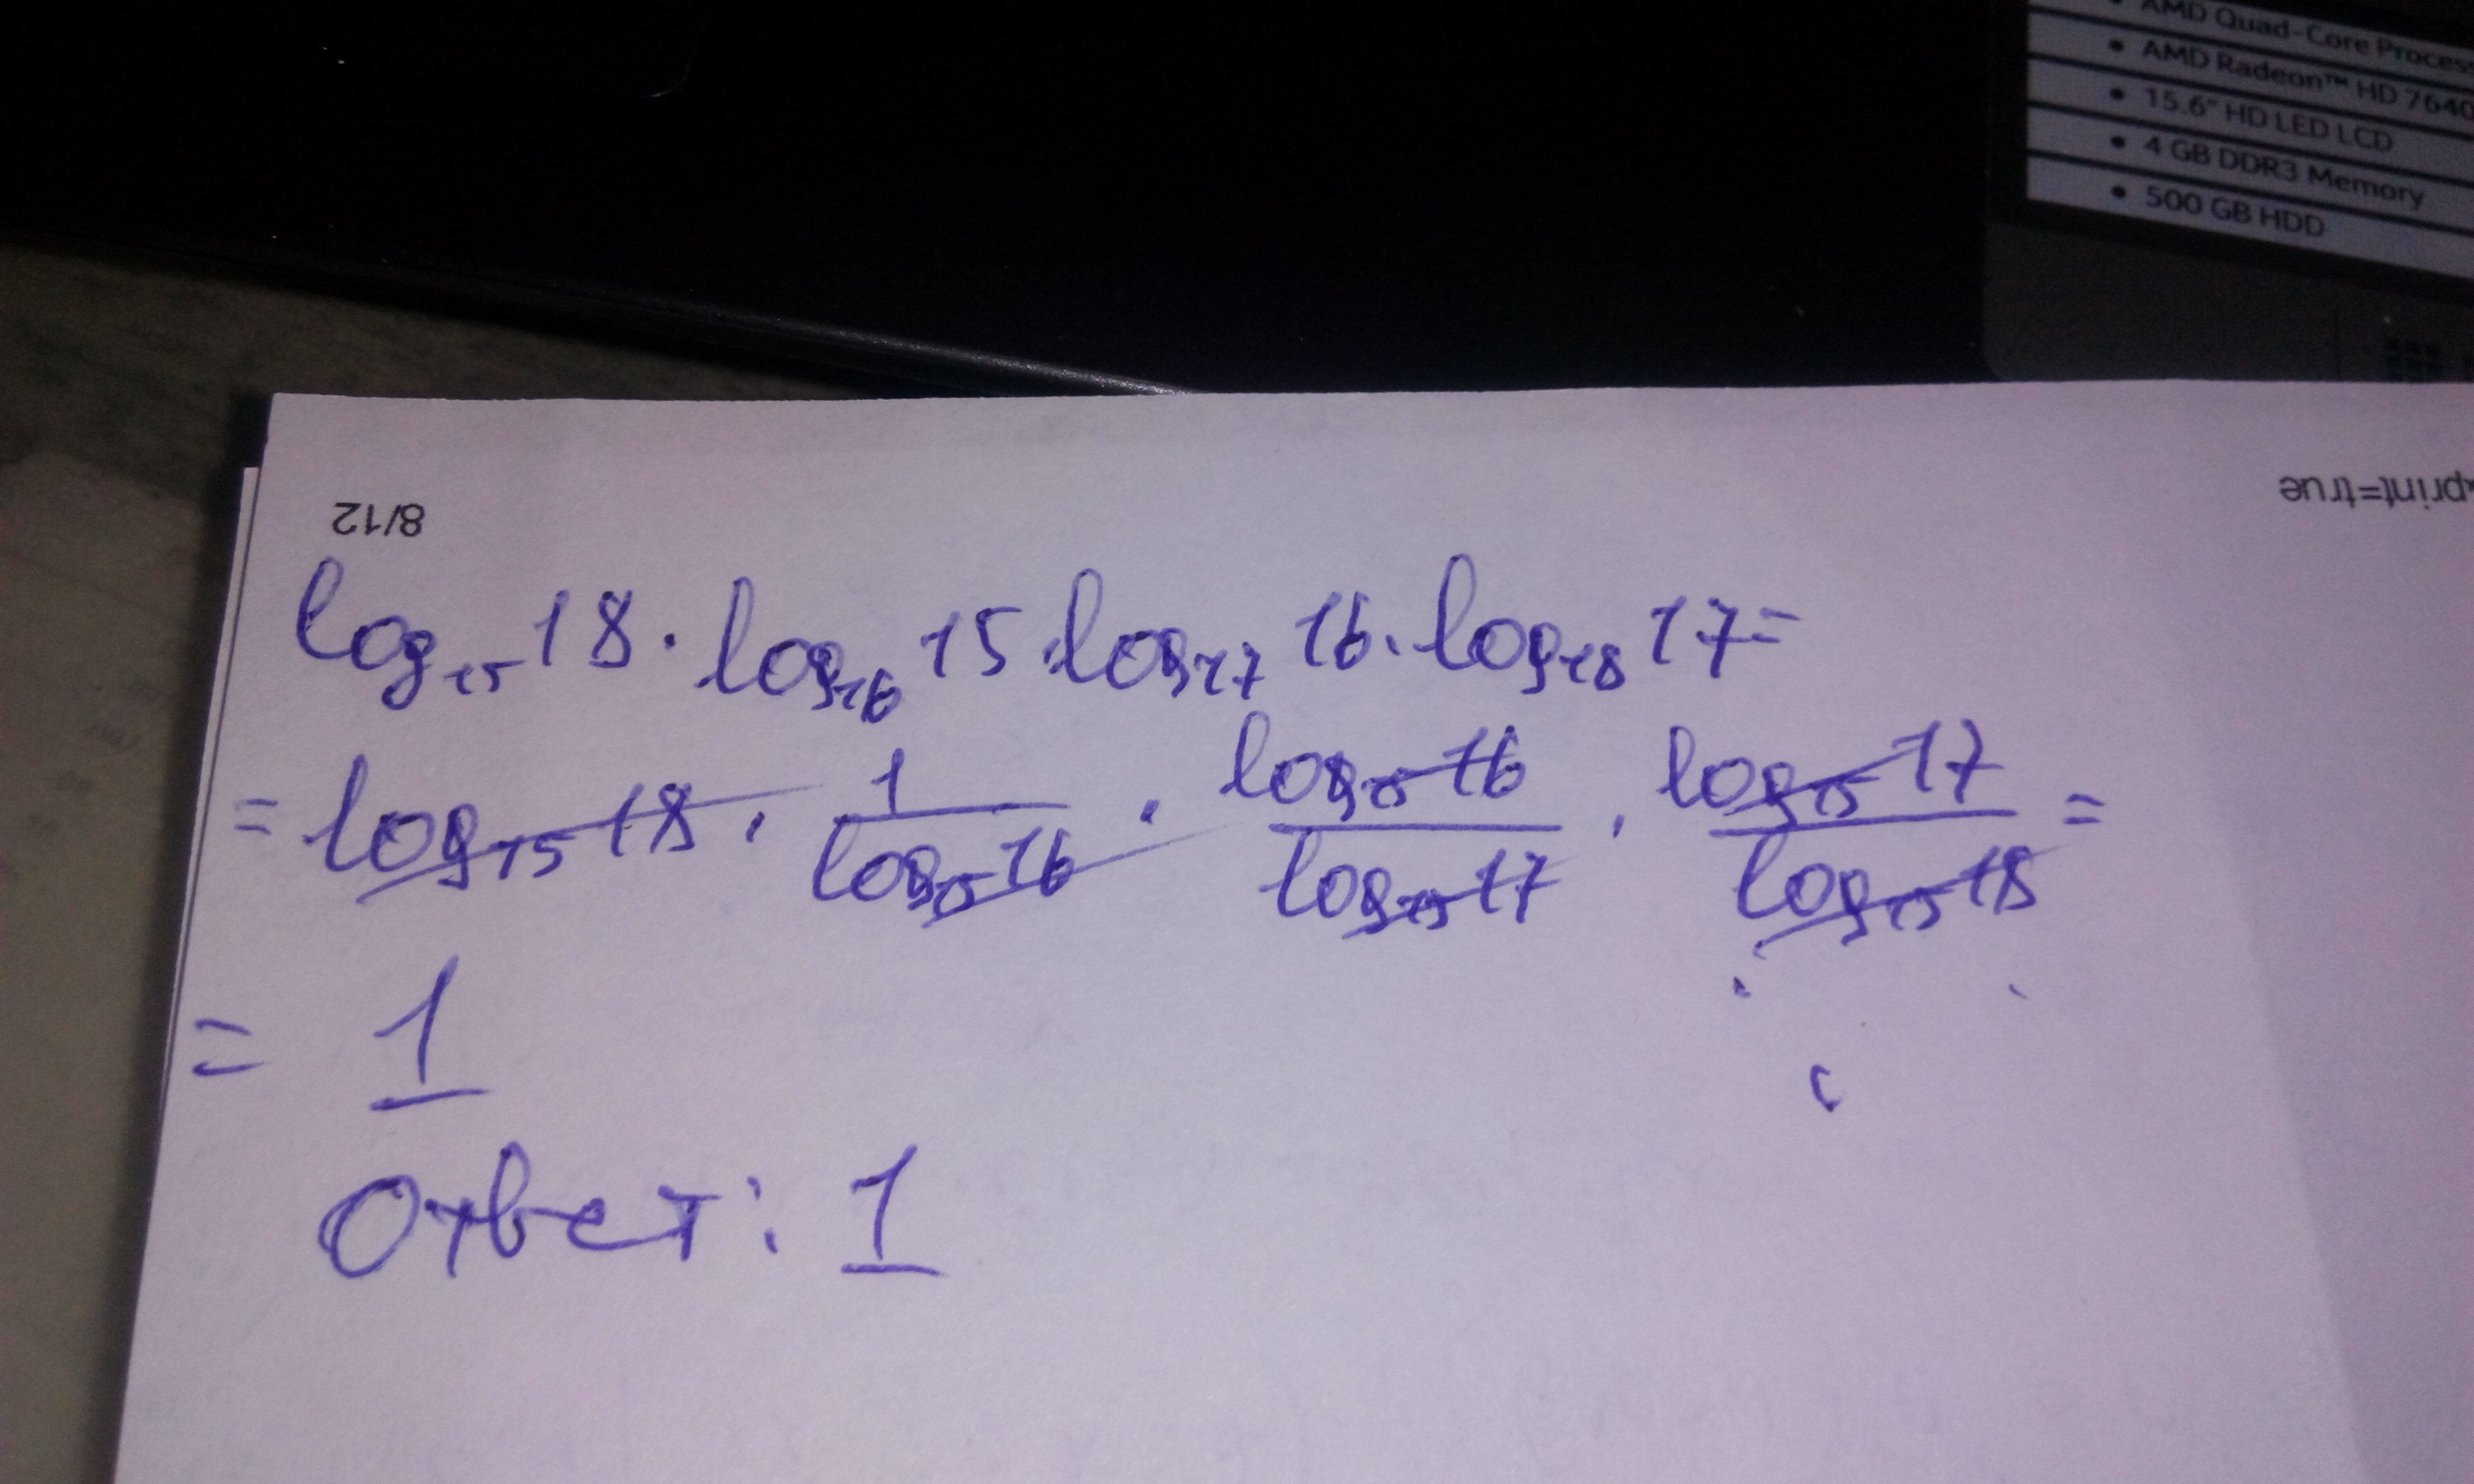 • AMD Quad-Core Process
• AMD Radeon™ HD 7640
• 15.6" HD LED LCD
• 4 GB DDR3 Memory
• 500 GB HDD
print=true
8/12
log₁₅ 18 · log₁₆ 15 · log₁₇ 16 · log₁₈ 17 =
= log₁₅ 18 · 1/log₁₅ 16 · log₁₅ 16/log₁₅ 17 · log₁₅ 17/log₁₅ 18 =
= 1
Ответ: 1